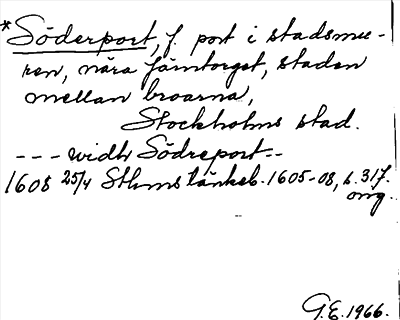 *Söderport, f. port i stadsmu-
ren, nära Järntorget, staden
mellan broarna,
Stockholms stad.
--- widh Södreport--
1608 25/4 Sthms tänkeb. 1605-08, s. 317.
orig.
G.E. 1966.